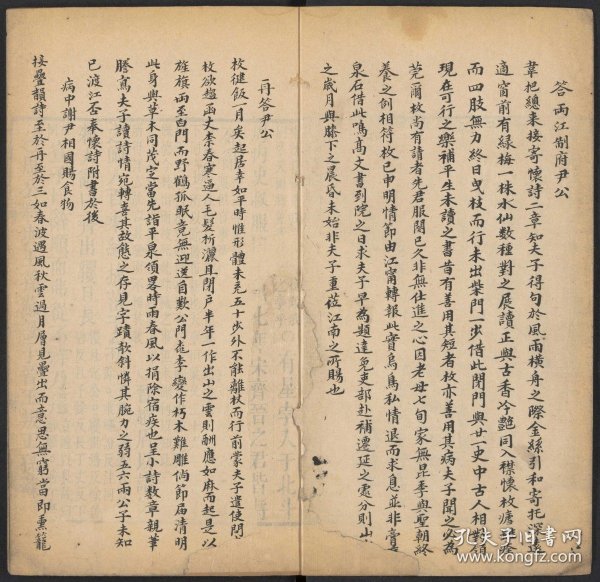 答兩江制府尹公
韋把總來接寄懷詩二章知夫子得句於風雨橫舟之際金絲引和寄托深
適窗前有綠梅一株水仙數種對之展讀正與古香冷艷同入襟懷枚瘧
而四肢無力終日曳杖而行未出柴門一步借此閉門與廿一史中古人相對
現在可行之樂補平生未讀之書昔有善用其短者枚亦善用其病夫子聞之必為
莞爾枚尚有請者先君服闋已久非無仕進之心因老母七旬家無昆季與聖朝終
養之例相符枚已申明情節由江甯轉報此實烏鳥私情退而求息並非膏
泉石借此鳴高文書到院之日求夫子早為題達免吏部赴補遷延之處分則山
之歲月與膝下之晨昏未始非夫子重蒞江南之所賜也
再答尹公
枚健飯一月矣起居幸如平時惟形體未充五十步外不能離杖而行前蒙夫子遣使問
枚欲趨函丈柰春寒逼人毛髮析灑且閉戶半年一作出山之雲則酬應如麻而起是以
旌旗兩至白門而野鶴孤眠竟無迎送自歎公門桃李變作朽木難雕倘節屆清明
此身與草木同茂定當先詣平泉領畧時雨春風以捐除宿疾也呈小詩數章親筆
謄寫夫子讀詩情宛轉喜其故態之存見字蹟欹斜憐其腕力之弱五六兩公子未知
已渡江否奉懷詩附書於後
病中謝尹相國賜食物
接疊韻詩至於再至於三如春波遇風秋雲過月層見疊出而意思無窮當即熏籠
孔夫子旧书网